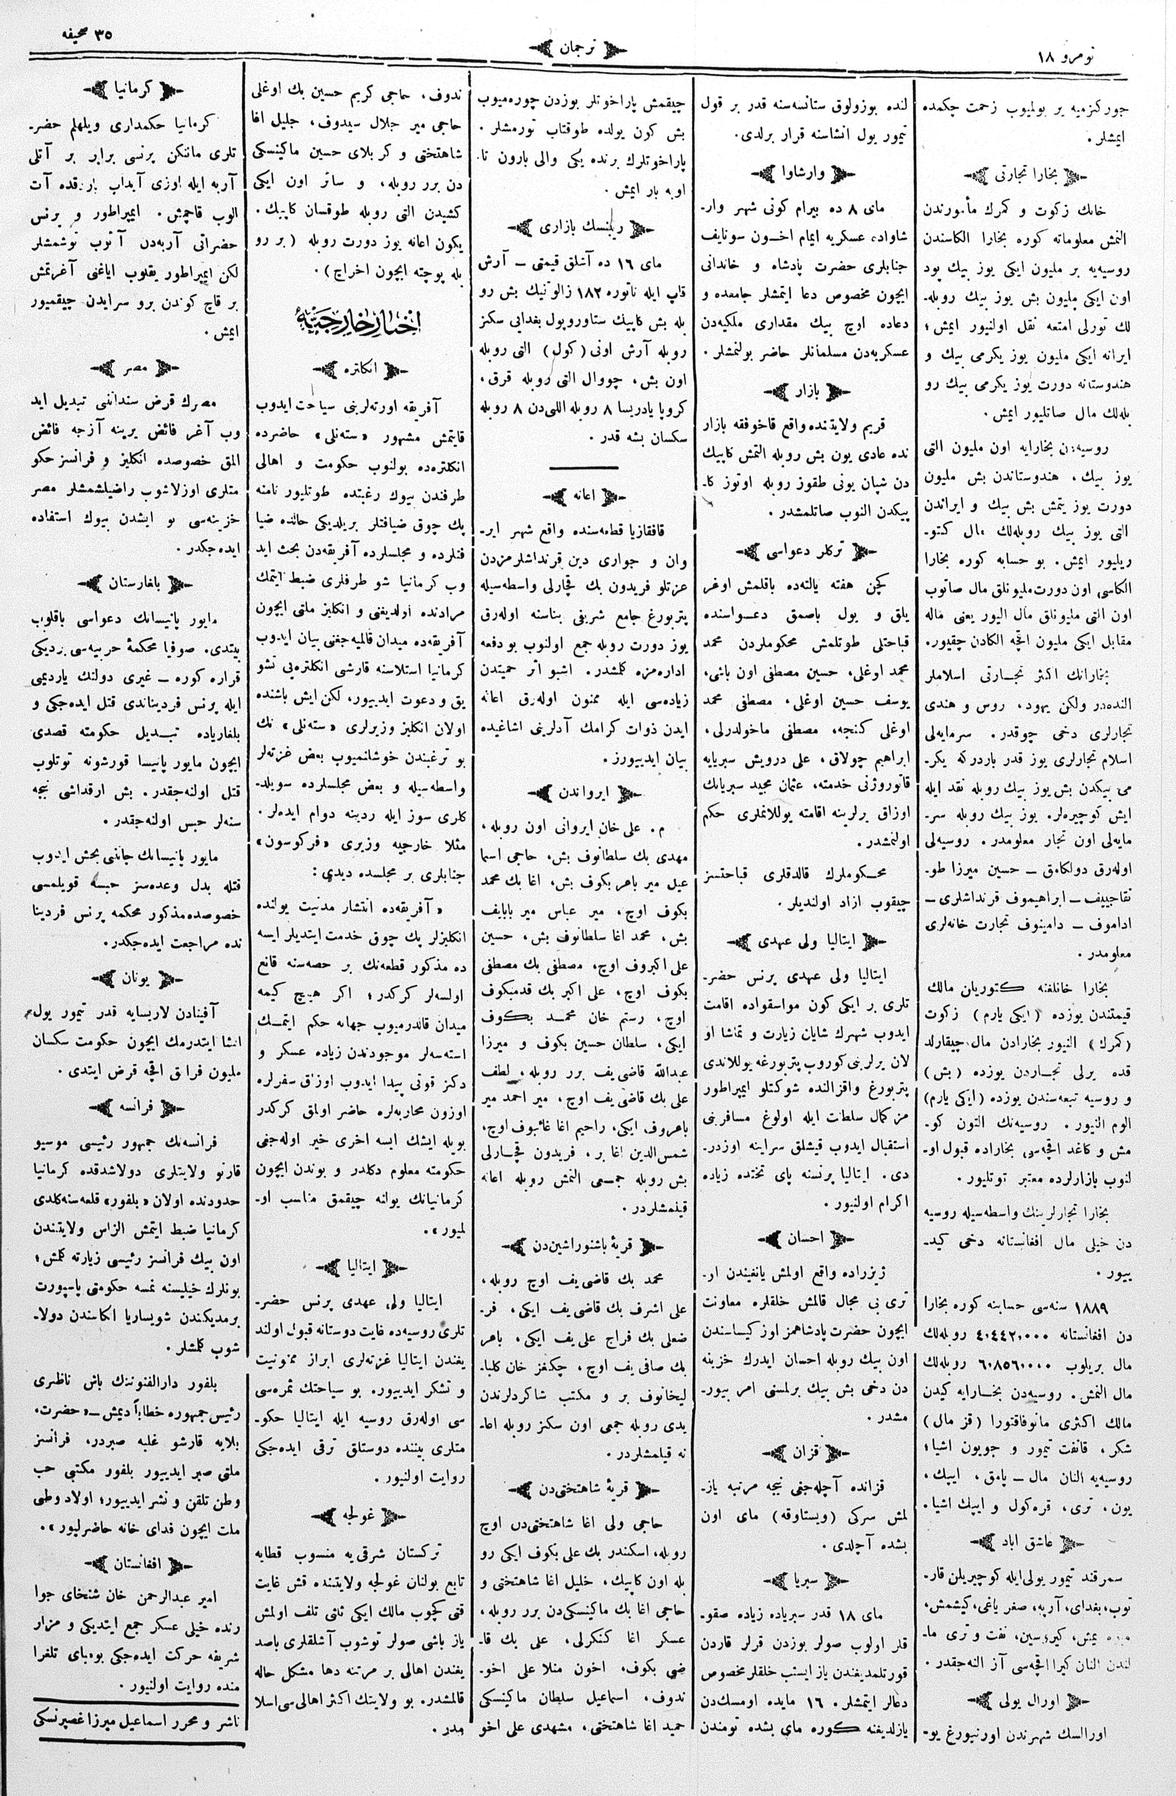 نومرو ١٨
ترجمان
٣٥ صحیفه
جورکنزمیه بر بولمیوب زحمت چکمده
ایتمشلر.
بخارا تجارتی
خانك زکوت و کمرك مأمورندن
النمش معلوماته کوره بخارا الکاسندن
روسیه‌یه بر ملیون ایکی یوز بیك پود
اون ایکی ملیون بش یوز بیك روبله‌ـ
لك تورلی امتعه نقل اولنیور ایمش؛
ایرانه ایکی ملیون یوز یکرمی بیك و
هندوستانه دورت یوز یکرمی بیك رو
بله‌لك مال صاتلیور ایمش.
روسیه‌دن بخارایه اون ملیون التی
یوز بیك، هندوستاندن بش ملیون
دورت یوز یتمش بش بیك و ایراندن
التی یوز بیك روبله‌لك مال کتوـ
ریلیور ایمش. بو حسابه کوره بخارا
الکاسی اون دورت ملیونلق مال صاتوب
اون التی ملیونلق مال الیور یعنی ماله
مقابل ایکی ملیون اقچه الکادن چقیور.
بخارانك اکثر تجارتی اسلاملر
النده‌در ولکن یهود، روس و هندی
تجارلری دخی چوقدر. سرمایه‌لی
اسلام تجارلری یوز قدر باردرکه یکرـ
می بیکدن بش یوز بیك روبله نقد ایله
ایش کوچیره‌لر. یوز بیك روبله سرـ
مایه‌لی اون تجار معلومدر. روسیه‌لی
اوله‌رق دولکاء‌ق ـ حسین میرزا طوـ
نقاجییف ـ ابراهیموف قرنداشلری ـ
اداموف ـ دامینوف تجارت خانه‌لری
معلومدر.
بخارا خانلغنه کتوریان مالك
قیمتندن یوزده (ایکی یارم) زکوت
(کمرك) النیور بخارادن مال چیقارلد
قده یرلی تجاردن یوزده (بش)
و روسیه تبعه‌سندن یوزده (ایکی یارم)
الوم النیور. روسیه‌نك التون کوـ
مش و کاغد اقچه‌سی بخاراده قبول اوـ
لنوب بازارلرده معتبر توتلیور.
بخارا تجارلرینك واسطه‌سیله روسیه
دن خیلی مال افغانستانه دخی کیدـ
ییور.
١٨٨٩ سنه‌سی حسابنه کوره بخارا
دن افغانستانه ٤،٤٤٢،٠٠٠ روبله‌لك
مال بریلوب ٦،٨٥٦،٠٠٠ روبله‌لك
مال النمش. روسیه‌دن بخارایه کیدن
مالك اکثری مانوفاقتورا (قز مال)
شکر، قانفت تیمور و جویون اشیا؛
روسیه‌یه النان مال ـ پامق، ایپك،
یون، تری، قره‌کول و ایپك اشیا.
عاشق اباد
سمرقند تیمور یولی‌ایله کوچیریلن قارـ
توب، بغدای، آرپه، صفر یاغی، کیشمش،
میوه یمش، کیروسین، نفت و تری ماـ
لندن النان کیرا اقچه‌سی آز النه‌جقدر.
اورال یولی
اورالسك شهرندن اورنبورغ یوـ
لنده بوزولوق ستانسه‌سنه قدر بر قول
تیمور یول انشاسنه قرار برلدی.
وارشاوا
مای ٨ ده بیرام کونی شهر وارـ
شاواده عسکریه ایمام اخون سونایف
جنابلری حضرت پادشاه و خاندانی
ایچون مخصوص دعا ایتمشلر جامعده و
دعاده اوچ بیك مقداری ملکیه‌دن
عسکریه‌دن مسلمانلر حاضر بولنمشلر.
بازار
قریم ولایتنده واقع قاخوفقه بازار
نده عادی یون بش روبله التمش کاپیك
دن شپان یونی طقوز روبله اوتوز کاـ
پیکدن النوب صاتلمشدر.
ترکلر دعواسی
کچن هفته یالته‌ده باقلمش اوغر
یلق و یول باصمق دعواسنده
قباحتلی طوتلمش محکوملردن محمد
محمد اوغلی، حسین مصطفی اون باشی،
یوسف حسین اوغلی، مصطفی محمد
اوغلی کنجه، مصطفی ماخولدرلی،
ابراهیم چولاق، علی درویش سیریایه
قاتورژنی خدمته، عثمان مجید سیریانك
اوزاق برلرینه اقامته یوللانملری حکم
اولنمشدر.
محکوملرك قالدقلری قباحتسز
چیقوب ازاد اولندیلر.
ایتالیا ولی عهدی
ایتالیا ولی عهدی پرنس حضرـ
تلری بر ایکی کون مواسقواده اقامت
ایدوب شهرك شایان زیارت و تماشا او
لان یرلرینی کوروب پتربورغه یوللاندی
پتربورغ واقزالنده شوکتلو ایمپراطور
مز کمال سلطات ایله اولوغ مسافرینی
استقبال ایدوب قیشلق سراینه اوزدرـ
دی. ایتالیا پرنسنه پای تختده زیاده
اکرام اولنیور.
احسان
ژیزراده واقع اولمش یانغیندن ارـ
تری بی مجال قالمش خلقلره معاونت
ایچون حضرت پادشاهمز اوز کیساسندن
اون بیك روبله احسان ایدرك خزینه
دن دخی بش بیك برلمسنی امر بیورـ
مشدر.
قزان
قزانده آچله‌جغی نیجه مرتبه یازـ
لمش سرکی (ویستاوقه) مای اون
بشده آچلدی.
سیریا
مای ١٨ قدر سیریاده زیاده صغوـ
قلر اولوب صولر بوزدن قرلر قاردن
قورتلمدیغندن یاز ایسنب خلقلر مخصوص
دعالر ایتمشلر. ١٦ مایده اومسك‌دن
یازلدیغنه کوره مای بشده تومندن
چیقمش پاراخوتلر بوزدن چوره‌میوب
بش کون یولده طوقتاب تورمشلر.
پاراخوتلرك برنده یکی والی بارون تاـ
اوبه بار ایمش.
ریلنسك بازاری
مای ١٦ ده آشلق قیمتی ـ آرش
قاپ ایله ناتوره ١٨٢ زالوتنیك بش رو
بله بش کاپیك ستاوروپول بغدایی سکز
روبله آرش اونی (کول) التی روبله
اون بش، چووال التی روبله قرق،
کروپا یادریسا ٨ روبله اللی‌دن ٨ روبله
سکسان بشه قدر.
اعانه
قافقازیا قطعه‌سنده واقع شهر ایرـ
وان و جواری دین قرنداشلرمزدن
عزتلو فریدون بك قچارلی واسطه‌سیله
پتربورغ جامع شریفی بناسنه اوله‌رق
یوز دورت روبله جمع اولنوب بودفعه
اداره‌مزه کلمشدر. اشبو اثر حمیتدن
زیاده‌سی ایله ممنون اوله‌رق اعانه
ایدن ذوات کرامك آدلرینی اشاغیده
بیان ایدییورز.
ایرواندن
م. علی خان ایروانی اون روبله،
مهدی بك سلطانوف بش، حاجی اسما
عیل میر باهر بکوف بش، اغا بك محمد
بکوف اوچ، میر عباس میر بابایف
بش، محمد اغا سلطانوف بش، حسین
علی اکبروف اوچ، مصطفی بك مصطفی
بکوف اوچ، علی اکبر بك قدمبکوف
اوچ، رستم خان محمد بکوف
ایکی، سلطان حسین بکوف و میرزا
عبدالله قاضی‌یف برر روبله، لطف
علی بك قاضی‌یف اوچ، میر احمد میر
باهروف ایکی، راحیم اغا غائبوف اوچ،
شمس‌الدین اغا بر، فریدون قچارلی
بش روبله جمعسی التمش روبله اعانه
قیلمشلردر.
قریهٔ باشنوراشین‌دن
محمد بك قاضی‌یف اوچ روبله،
علی اشرف بك قاضی‌یف ایکی، فرـ
ضعلی بك فراج علی‌یف ایکی، باهر
بك صافی‌یف اوچ، چکنفز خان کلباـ
لیخانوف بر و مکتب شاکردلرندن
یدی روبله جمعی اون سکز روبله اعاـ
نه قیلمشلردر.
قریهٔ شاهتختی‌دن
حاجی ولی اغا شاهتختی‌دن اوچ
روبله، اسکندر بك علی بکوف ایکی رو
بله اون کاپیك، خلیل اغا شاهتختی و
حاجی اغا بك ماکینسکی‌دن برر روبله،
عسکر اغا کنکرلی، علی بك قاـ
ضی بکوف، اخون منلا علی اخوـ
ندوف، اسماعیل سلطان ماکینسکی
حمید اغا شاهتختی، مشهدی علی اخو
ندوف، حاجی کریم حسین بك اوغلی
حاجی میر جلال سیدوف، جلیل اغا
شاهتختی و کربلای حسین ماکینسکی
دن برر روبله، و سائر اون ایکی
کشیدن التی روبله طوقسان کاپیك.
یکون اعانه یوز دورت روبله (بر رو
بله پوچته ایچون اخراج).
اخبار خارجیّه
انکلتره
آفریقه اورته‌لرینی سیاحت ایدوب
قایتمش مشهور «سته‌نلی» حاضرده
انکلتره‌ده بولنوب حکومت و اهالی
طرفندن بیوك رغبتده طوتلیور نامنه
پك چوق ضیافتلر بریلدیکی حالده ضیا
فتلرده و مجلسلرده آفریقه‌دن بحث اید
وب کرمانیا شو طرفلری ضبط ایتمك
مرادنده اولدیغنی و انکلیز ملتی ایچون
آفریقه‌ده میدان قالمیه‌جغنی بیان ایدوب
کرمانیا استلاسنه قارشی انکلتره‌یی تشو
یق و دعوت ایدییور، لکن ایش باشنده
اولان انکلیز وزیرلری «سته‌نلی» نك
بو ترغیبندن خوشلانمیوب بعض غزته‌لر
واسطه‌سیله و بعض مجلسلرده سویلدـ
کلری سوز ایله ردینه دوام ایده‌لر.
مثلا خارجیه وزیری «فرکوسون»
جنابلری بر مجلسده دیدی:
«آفریقه‌ده انتشار مدنیت یولنده
انکلیزلر پك چوق خدمت ایتدیلر ایسه
ده مذکور قطعه‌نك بر حصه‌سنه قانع
اولسه‌لر کرکدر؛ اکر هیچ کیمه
میدان قالدرمیوب جهانه حکم ایتمك
استه‌سه‌لر موجودندن زیاده عسکر و
دکز قوتی پیدا ایدوب اوزاق سفرلره
اوزون محاربه‌لره حاضر اولمق کرکدر
بویله ایشك ایسه اخری خیر اوله‌جغی
حکومته معلوم دکلدر و بوندن ایچون
کرمانیانك یولنه چیقمق مناسب اوـ
لمیور».
ایتالیا
ایتالیا ولی عهدی پرنس حضرـ
تلری روسیه‌ده غایت دوستانه قبول اولند
یغندن ایتالیا غزته‌لری ابراز ممنونیت
و تشکر ایدییور. بو سیاحتك ثمره‌سی
سی اوله‌رق روسیه ایله ایتالیا حکوـ
متلری بیننده دوستلق ترقی ایده‌جکی
روایت اولنیور.
غولجه
ترکستان شرقی‌یه منسوب قطایه
تابع بولنان غولجه ولایتنده قش غایت
قتی کچوب مالك ایکی ثلثی تلف اولمش
یاز باشی صولر توشوب آشلقلری باصد
یغندن اهالی بر مرتبه دها مشکل حاله
قالمشدر. بو ولایتك اکثر اهالی‌سی اسلا
مدر.
کرمانیا
کرمانیا حکمداری ویلهلم حضرـ
تلری ماننکن پرنسی برابر بر آتلی
آربه ایله اوزی آیداب بارغده آت
الوب قاچمش. ایمپراطور و پرنس
حضراتی آربه‌دن آتوب توشمشلر
لکن ایمپراطور یقلوب ایاغنی آغرتمش
بر قاچ کوندن برو سرایدن چیقمیور
ایمش.
مصر
مصرك قرض سنداتنی تبدیل اید
وب آغر فائض یرینه آزجه فائض
المق خصوصده انکلیز و فرانسز حکو
متلری اوزلاشوب راضیلشمشلر مصر
خزینه‌سی بو ایشدن بیوك استفاده
ایده‌جکدر.
بلغارستان
مایور پانیسانك دعواسی باقلوب
بیتدی. صوفیا محکمهٔ حربیه‌سی بردیکی
قراره کوره ـ غیری دولتك یاردیمی
ایله پرنس فردیناندی قتل ایده‌جکی و
بلغاریاده تبدیل حکومته قصدی
ایچون مایور پانیسا قورشونه توتلوب
قتل اولنه‌جقدر. بش ارقداشی نیجه
سنه‌لر حبس اولنه‌جقدر.
مایور پانیسانك جاننی بخش ایدوب
قتله بدل وعده‌سز حبسه قویلمسی
خصوصده مذکور محکمه پرنس فردینا
نده مراجعت ایده‌جکدر.
یونان
آفینادن لاریسایه قدر تیمور یول
انشا ایتدرمك ایچون حکومت سکسان
ملیون فرانق اقچه قرض ایتدی.
فرانسه
فرانسه‌نك جمهور رئیسی موسیو
قارنو ولایتلری دولاشدقده کرمانیا
حدودنده اولان «بلفور» قلعه‌سنه کلدی
کرمانیا ضبط ایتمش الزاس ولایتندن
اون بیك فرانسز رئیسی زیارته کلمش؛
بونلرك خیلیسنه نمسه حکومتی پاسپورت
برمدیکندن شویساریا الکاسندن دولاـ
شوب کلمشلر.
بلفور دارالفنوننك باش ناظری
رئیس جمهوره خطاباً دیمش ـ «حضرت،
بلایه قارشو غلبه صبردر، فرانسز
ملتی صبر ایدییور بلفور مکتبی حب
وطن تلقن و نشر ایدییور؛ اولاد وطن
ملت ایچون فدای خانه حاضرلیور».
افغانستان
امیر عبدالرحمن خان شنخای جوا
رنده خیلی عسکر جمع ایتدیکی و مزار
شریفه حرکت ایده‌جکی بومبای تلغرا
منده روایت اولنیور.
ناشر و محرر اسماعیل میرزا غصپرنسکی